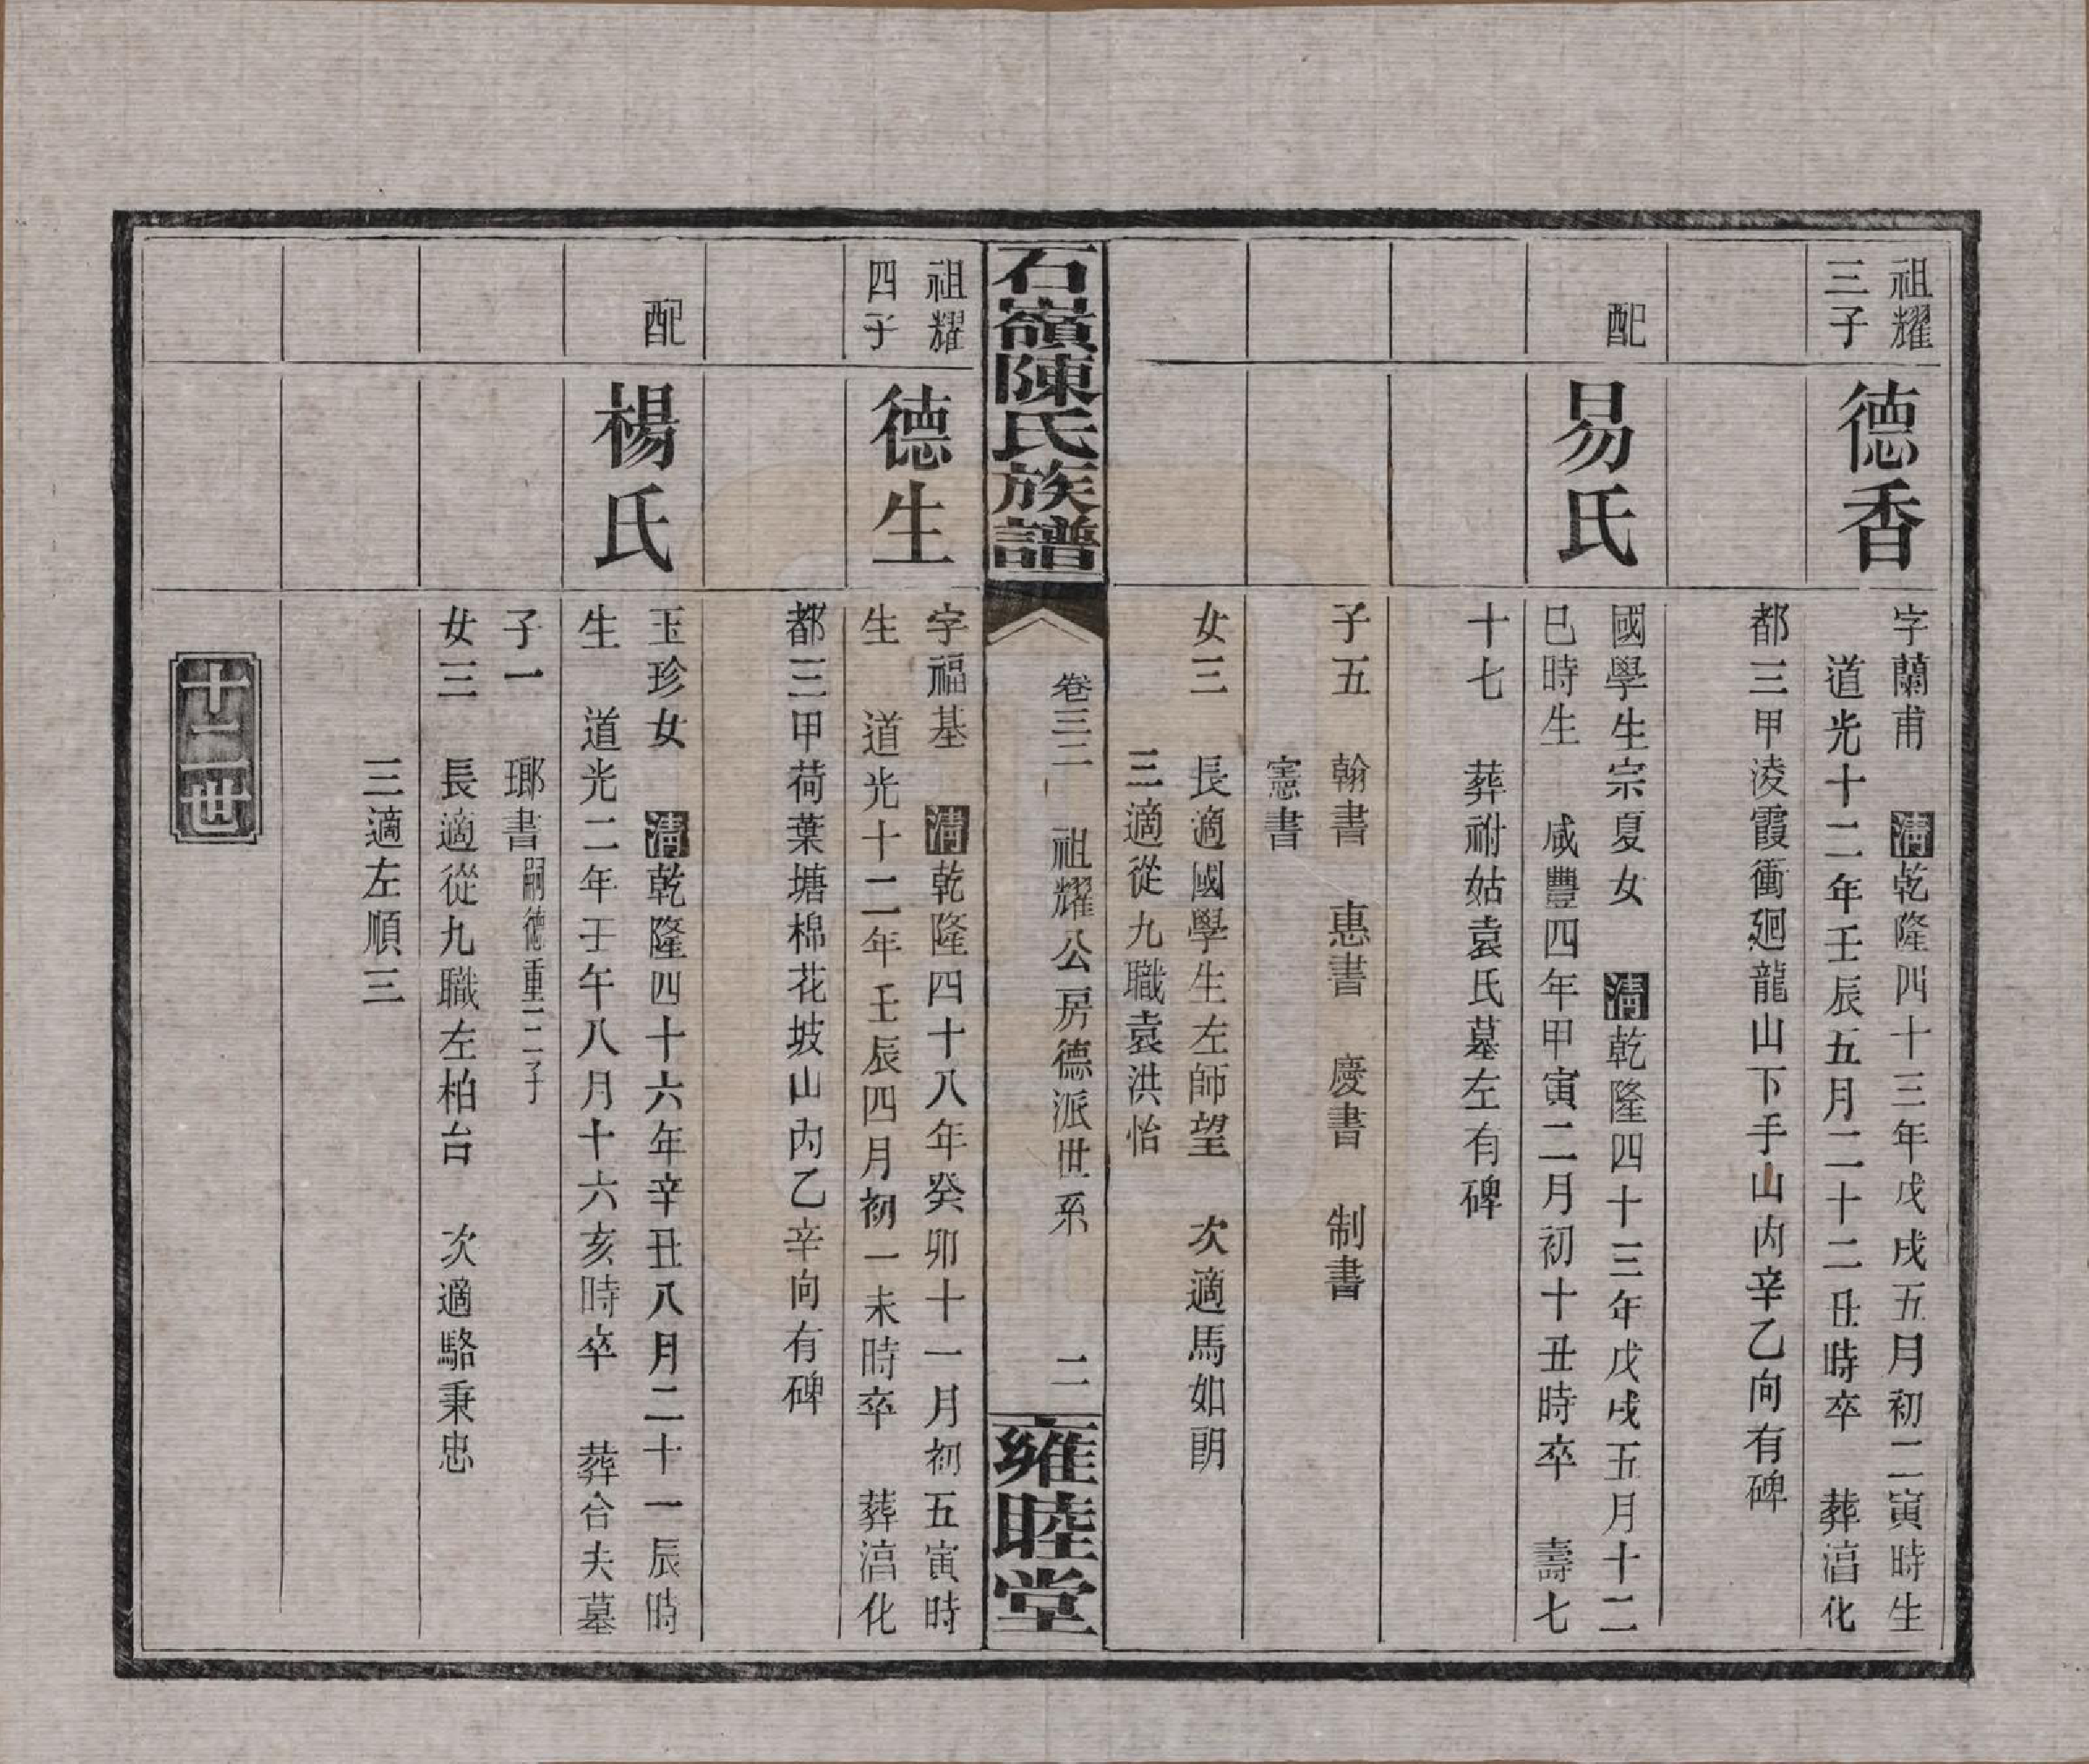 祖耀
三子
德香
字蘭甫 清乾隆四十三年戊戌五月初二寅時生
道光十二年壬辰五月二十二丑時卒 葬湻化
都三甲淩霞衝廻龍山下手山內辛乙向有碑
配
易氏
國學生宗夏女 清乾隆四十三年戊戌五月十二
巳時生 咸豐四年甲寅二月初十丑時卒 壽七
十七 葬祔姑袁氏墓左有碑
子五 翰書 惠書 慶書 制書
憲書
女三 長適國學生左師望 次適馬如朗
三適從九職袁洪怡
石嶺陳氏族譜
卷三二 祖耀公房德派世系 二
雍睦堂
祖耀
四子
德生
字福基 清乾隆四十八年癸卯十一月初五寅時
生 道光十二年壬辰四月初一未時卒 葬湻化
都三甲荷葉塘棉花坡山內乙辛向有碑
配
楊氏
玉珍女 清乾隆四十六年辛丑八月二十一辰時
生 道光二年壬午八月十六亥時卒 葬合夫墓
子一 瑯書嗣德重二子
女三 長適從九職左柏台 次適駱秉忠
三適左順三
十二世